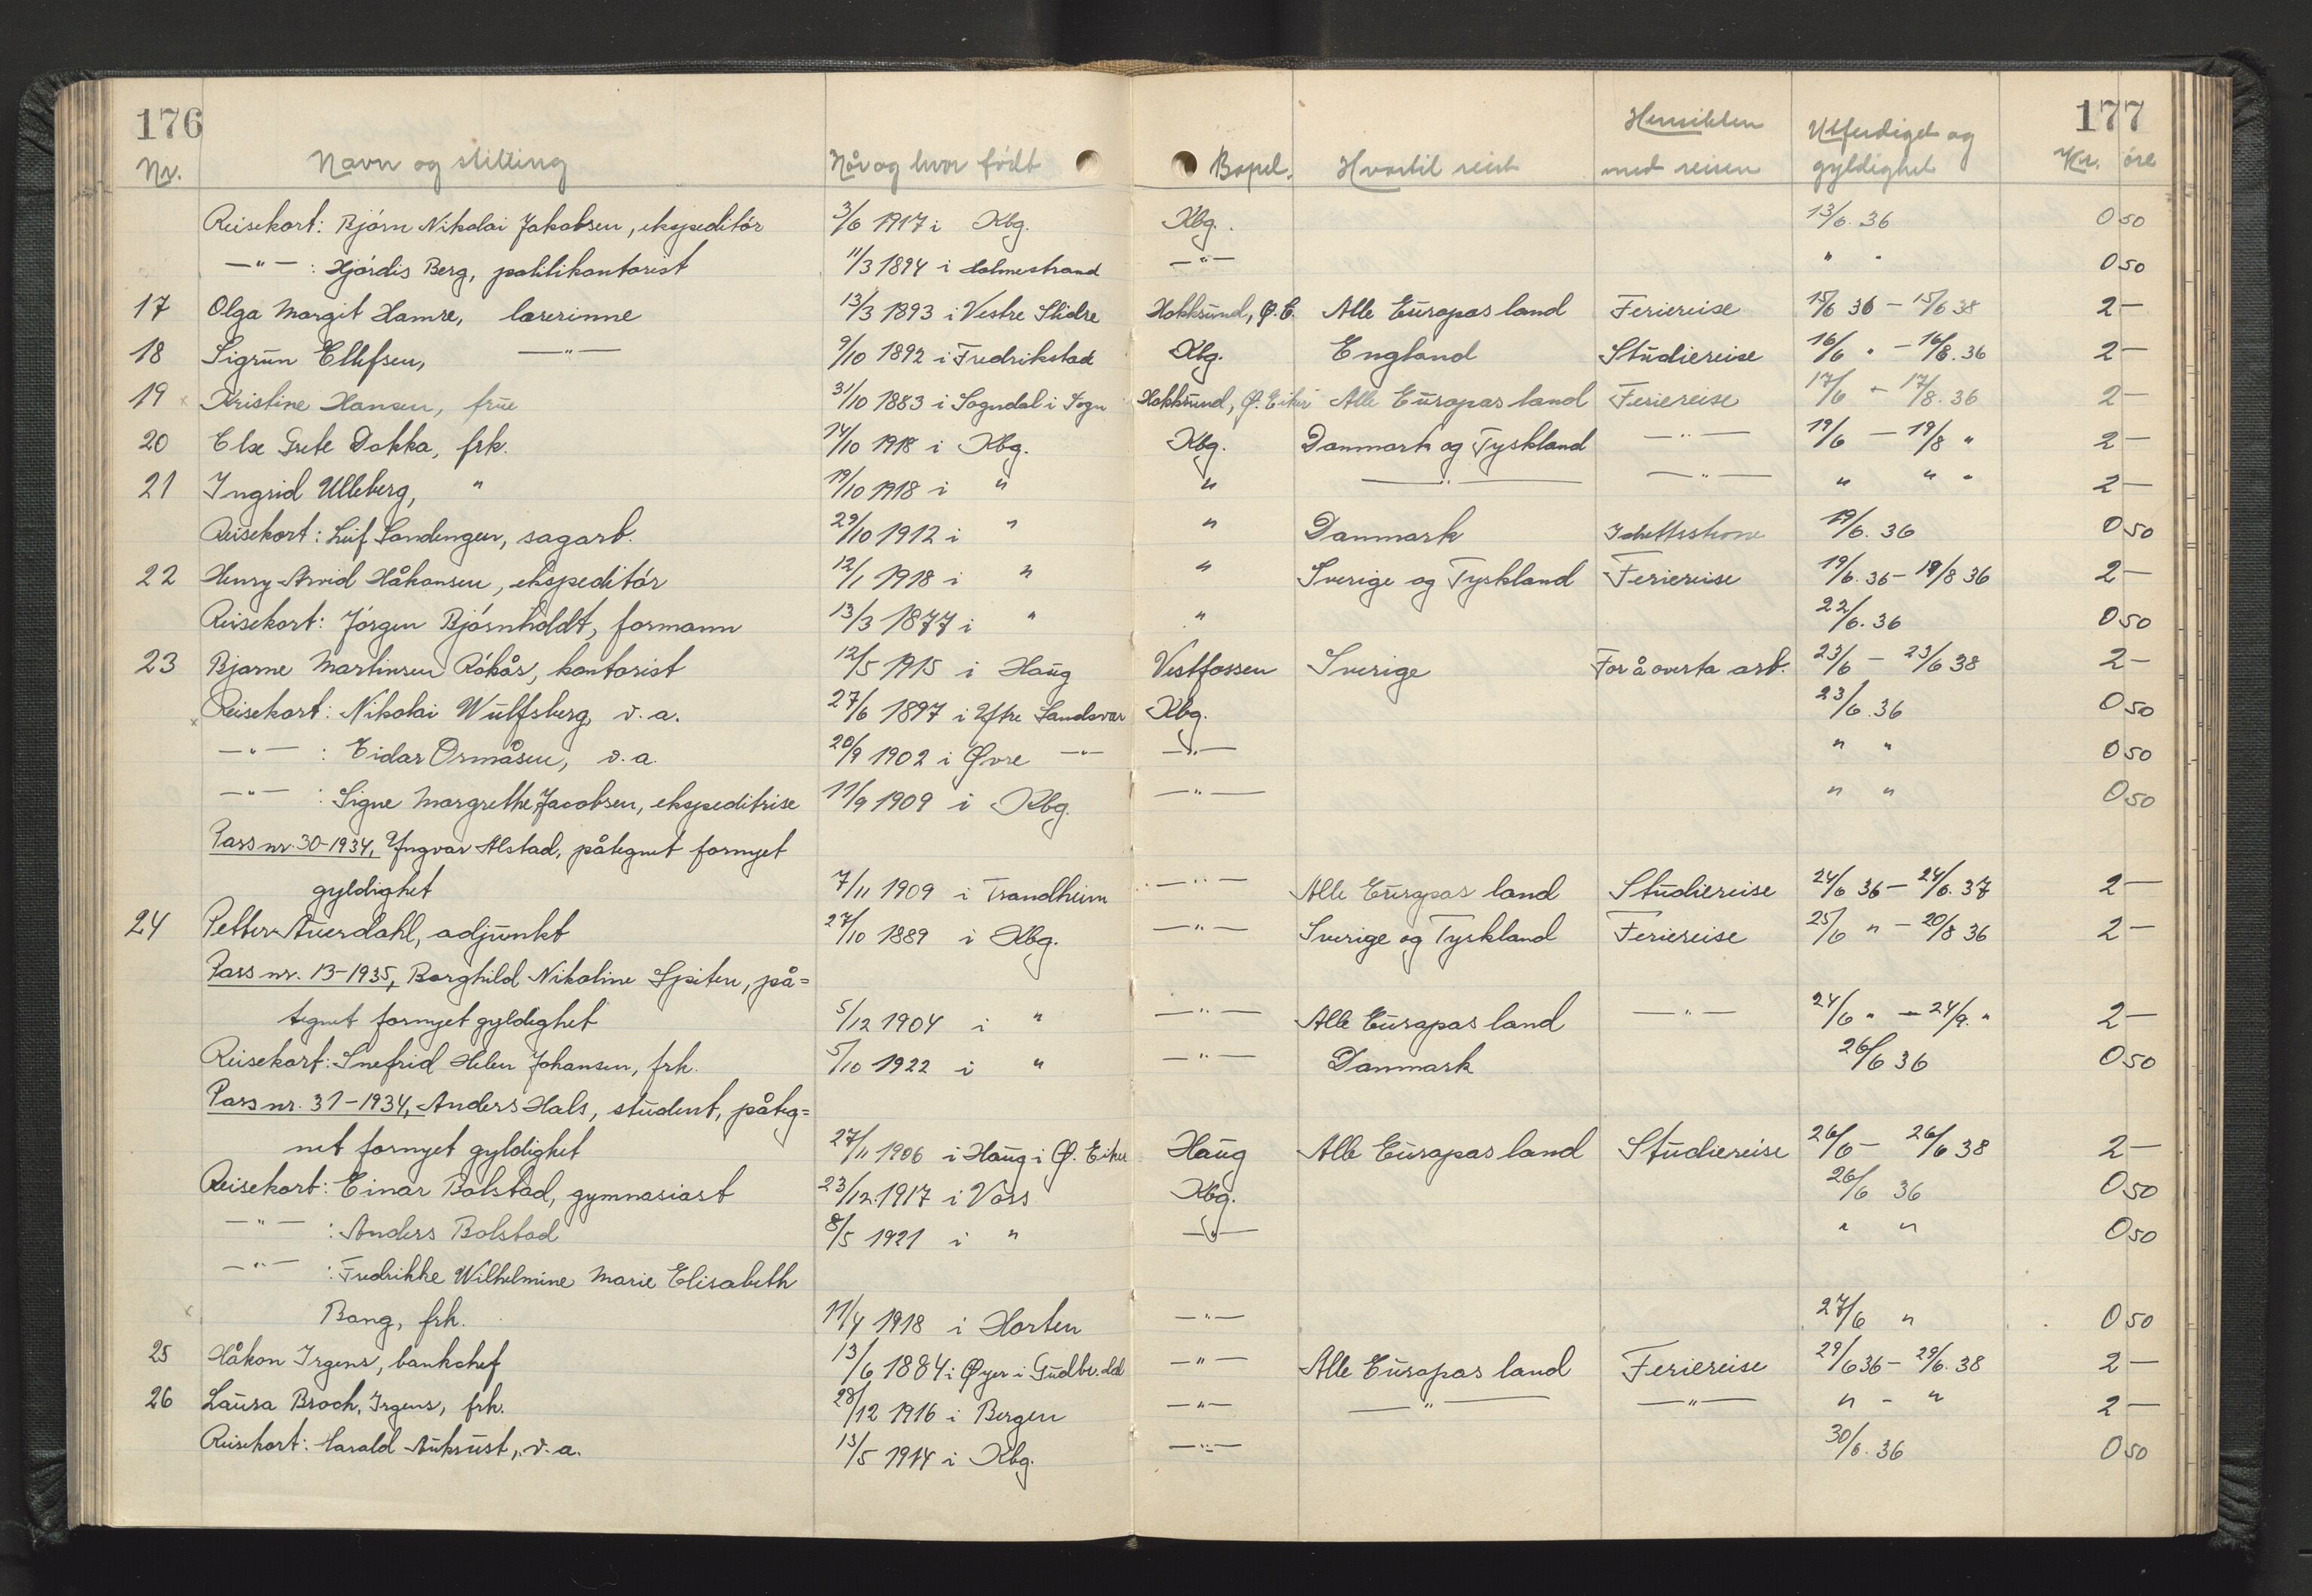 176
177
Nr. Navn og stilling Når og hvor födt Bopel. Hvortil reist Hensikten med reisen Utferdiget og gyldighet Kr. öre
Reisekort: Björn Nikolai Jakobsen, ekspeditör 3/6 1917 i Kbg. Kbg. 13/6. 36 0 50
—"— : Hjördis Berg, politikontorist 11/3 1894 i Holmestrand —"— " " 0 50
17 Olga Margit Hamre, lærerinne 13/3 1893 i Vestre Slidre Hokksund, Ø.E. Alle Europas land Feriereise 15/6 36 — 15/6 38 2 —
18 Sigrun Ellefsen, —"— 9/10 1892 i Fredrikstad Kbg. England Studiereise 16/6 " — 16/8. 36 2 —
19 x Kristine Hansen, frue 31/10 1883 i Sogndal i Sogn Hokksund, Ø. Eiker Alle Europas land Feriereise 17/6 — 17/8. 36 2 —
20 Else Grete Dokka, frk. 14/10 1918 i Kbg. Kbg. Danmark og Tyskland —"— 19/6 — 19/8 " 2 —
21 Ingrid Ulleberg, " 19/10 1918 i " " —"— —"— " " " 2 —
Reisekort: Leif Sandengen, sagarb. 29/10 1912 i " " Danmark 19/6. 36 0 50
22 Henry Arvid Håkonsen, ekspeditör 12/1 1918 i " " Sverige og Tyskland Feriereise 19/6. 36 — 19/8 36 2 —
Reisekort: Jörgen Bjørnholdt, formann 13/3 1877 i " " 22/6. 36 0 50
23 Bjarne Martinsen Rökås, kontorist 12/5 1915 i Haug Vestfossen Sverige For å overta arb. 23/6 — 23/6 38 2 —
x Reisekort: Nikolai Wulfsberg, v. a. 27/6 1897 i Ytre Sandsvær Kbg. 23/6. 36 0 50
—"— : Eidar Ormåsen, v. a. 20/9 1902 i Øvre —"— —"— " " 0 50
—"— : Signe Margrethe Jacobsen, ekspeditrise 11/9 1909 i Kbg. —"— " " 0 50
Pass nr. 30-1934, Yngvar Alstad, påtegnet fornyet
gyldighet 7/11 1909 i Trondheim —"— Alle Europas land Studiereise 24/6 36 — 24/6. 37 2 —
24 Petter Auerdahl, adjunkt 27/10 1889 i Kbg. —"— Sverige og Tyskland Feriereise 25/6 " — 20/8 36 2 —
Pass nr. 13-1935, Borghild Nikoline Spiten, på=
tegnet fornyet gyldighet 5/12 1904 i " —"— Alle Europas land —"— 24/6 " — 24/9. " 2 —
Reisekort: Snefrid Helen Johansen, frk. 5/10 1922 i " —"— Danmark 26/6 36 0 50
Pass nr. 31-1934, Anders Hals, student, påteg=
net fornyet gyldighet 27/11 1906 i Haug i Ø. Eiker Haug Alle Europas land Studiereise 26/6 — 26/6 38 2 —
Reisekort: Einar Bolstad, gymnasiast 23/12. 1917 i Voss Kbg. 26/6 36 0 50
—"— : Anders Bolstad 8/5 1921 i " —"— " " 0 50
—"— : Fredrikke Wilhelmine Marie Elisabeth
x Bang, frk. 11/4 1918 i Horten —"— 27/6 " 0 50
25 Håkon Irgens, bankchef 13/6 1884 i Øyer i Gudbr.dal —"— Alle Europas land Feriereise 29/6 36 — 29/6. 38 2 —
26 Laura Broch, Irgens, frk. 28/12 1916 i Bergen —"— —"— —"— " - " 2 —
Reisekort: Harald Aukrust, v. a. 13/5 1914 i Kbg. —"— 30/6. 36 0 50